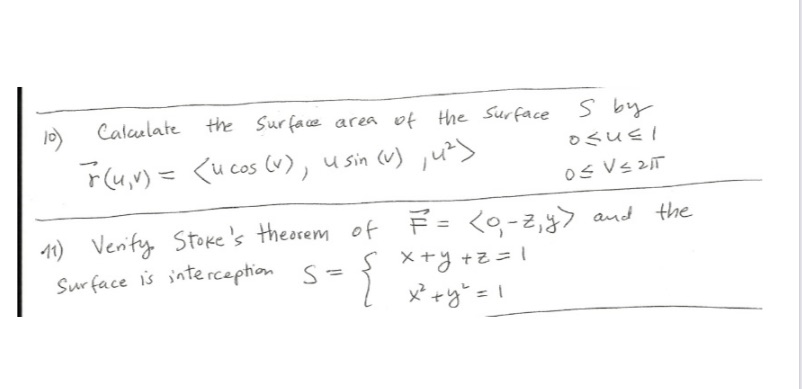 10) Calculate the Surface area of the Surface S by
r⃗(u,v) = <u cos (v), u sin (v) , u²> 0≤u≤1
0≤ V≤2π
11) Verify Stoke's theorem of F⃗ = <0,-z,y> and the
Surface is interception S = { x+y+z=1
x²+y²=1